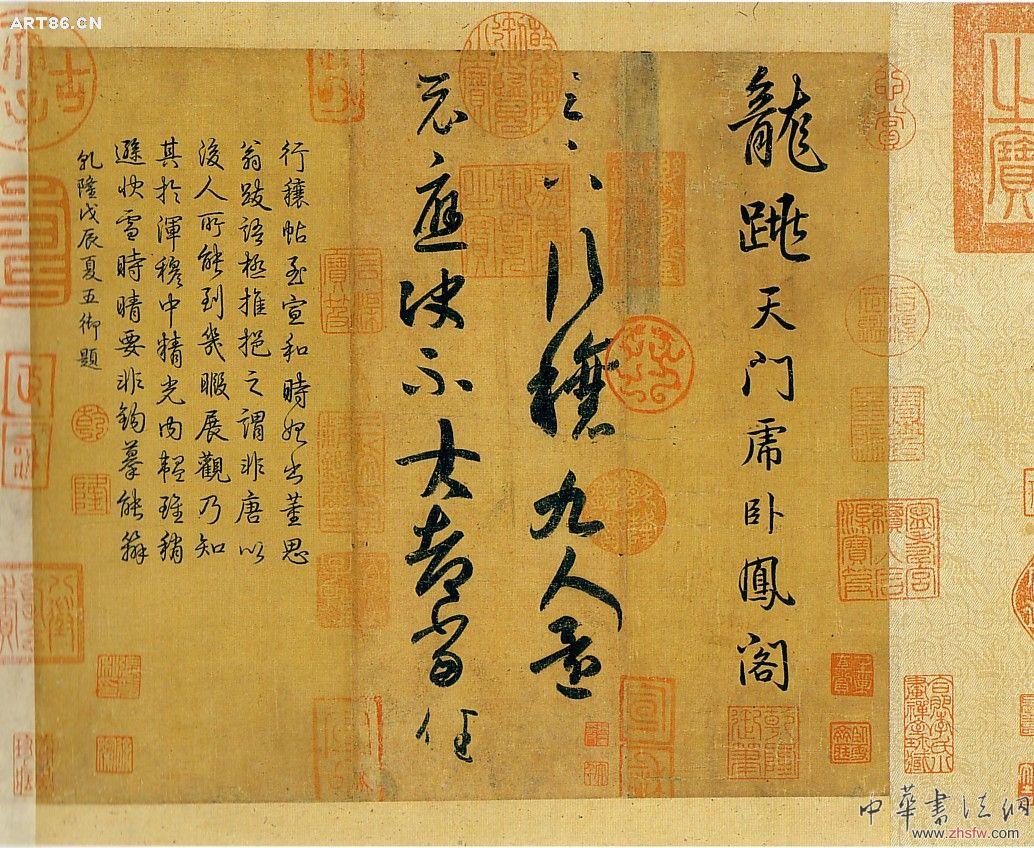 ART86.CN
龍跳天門虎卧鳳閣
足下行穰九人還
示應決不大都當佳
行穰帖至宣和時始出董思
翁跋語極推挹之謂非唐以
後人所能到幾暇展觀乃知
其於渾穆中精光內韞雖稍
遜快雪時晴要非鉤摹能辦
乾隆戊辰夏五御題
之寶
乾
隆
中華書法網
www.zhsfw.com